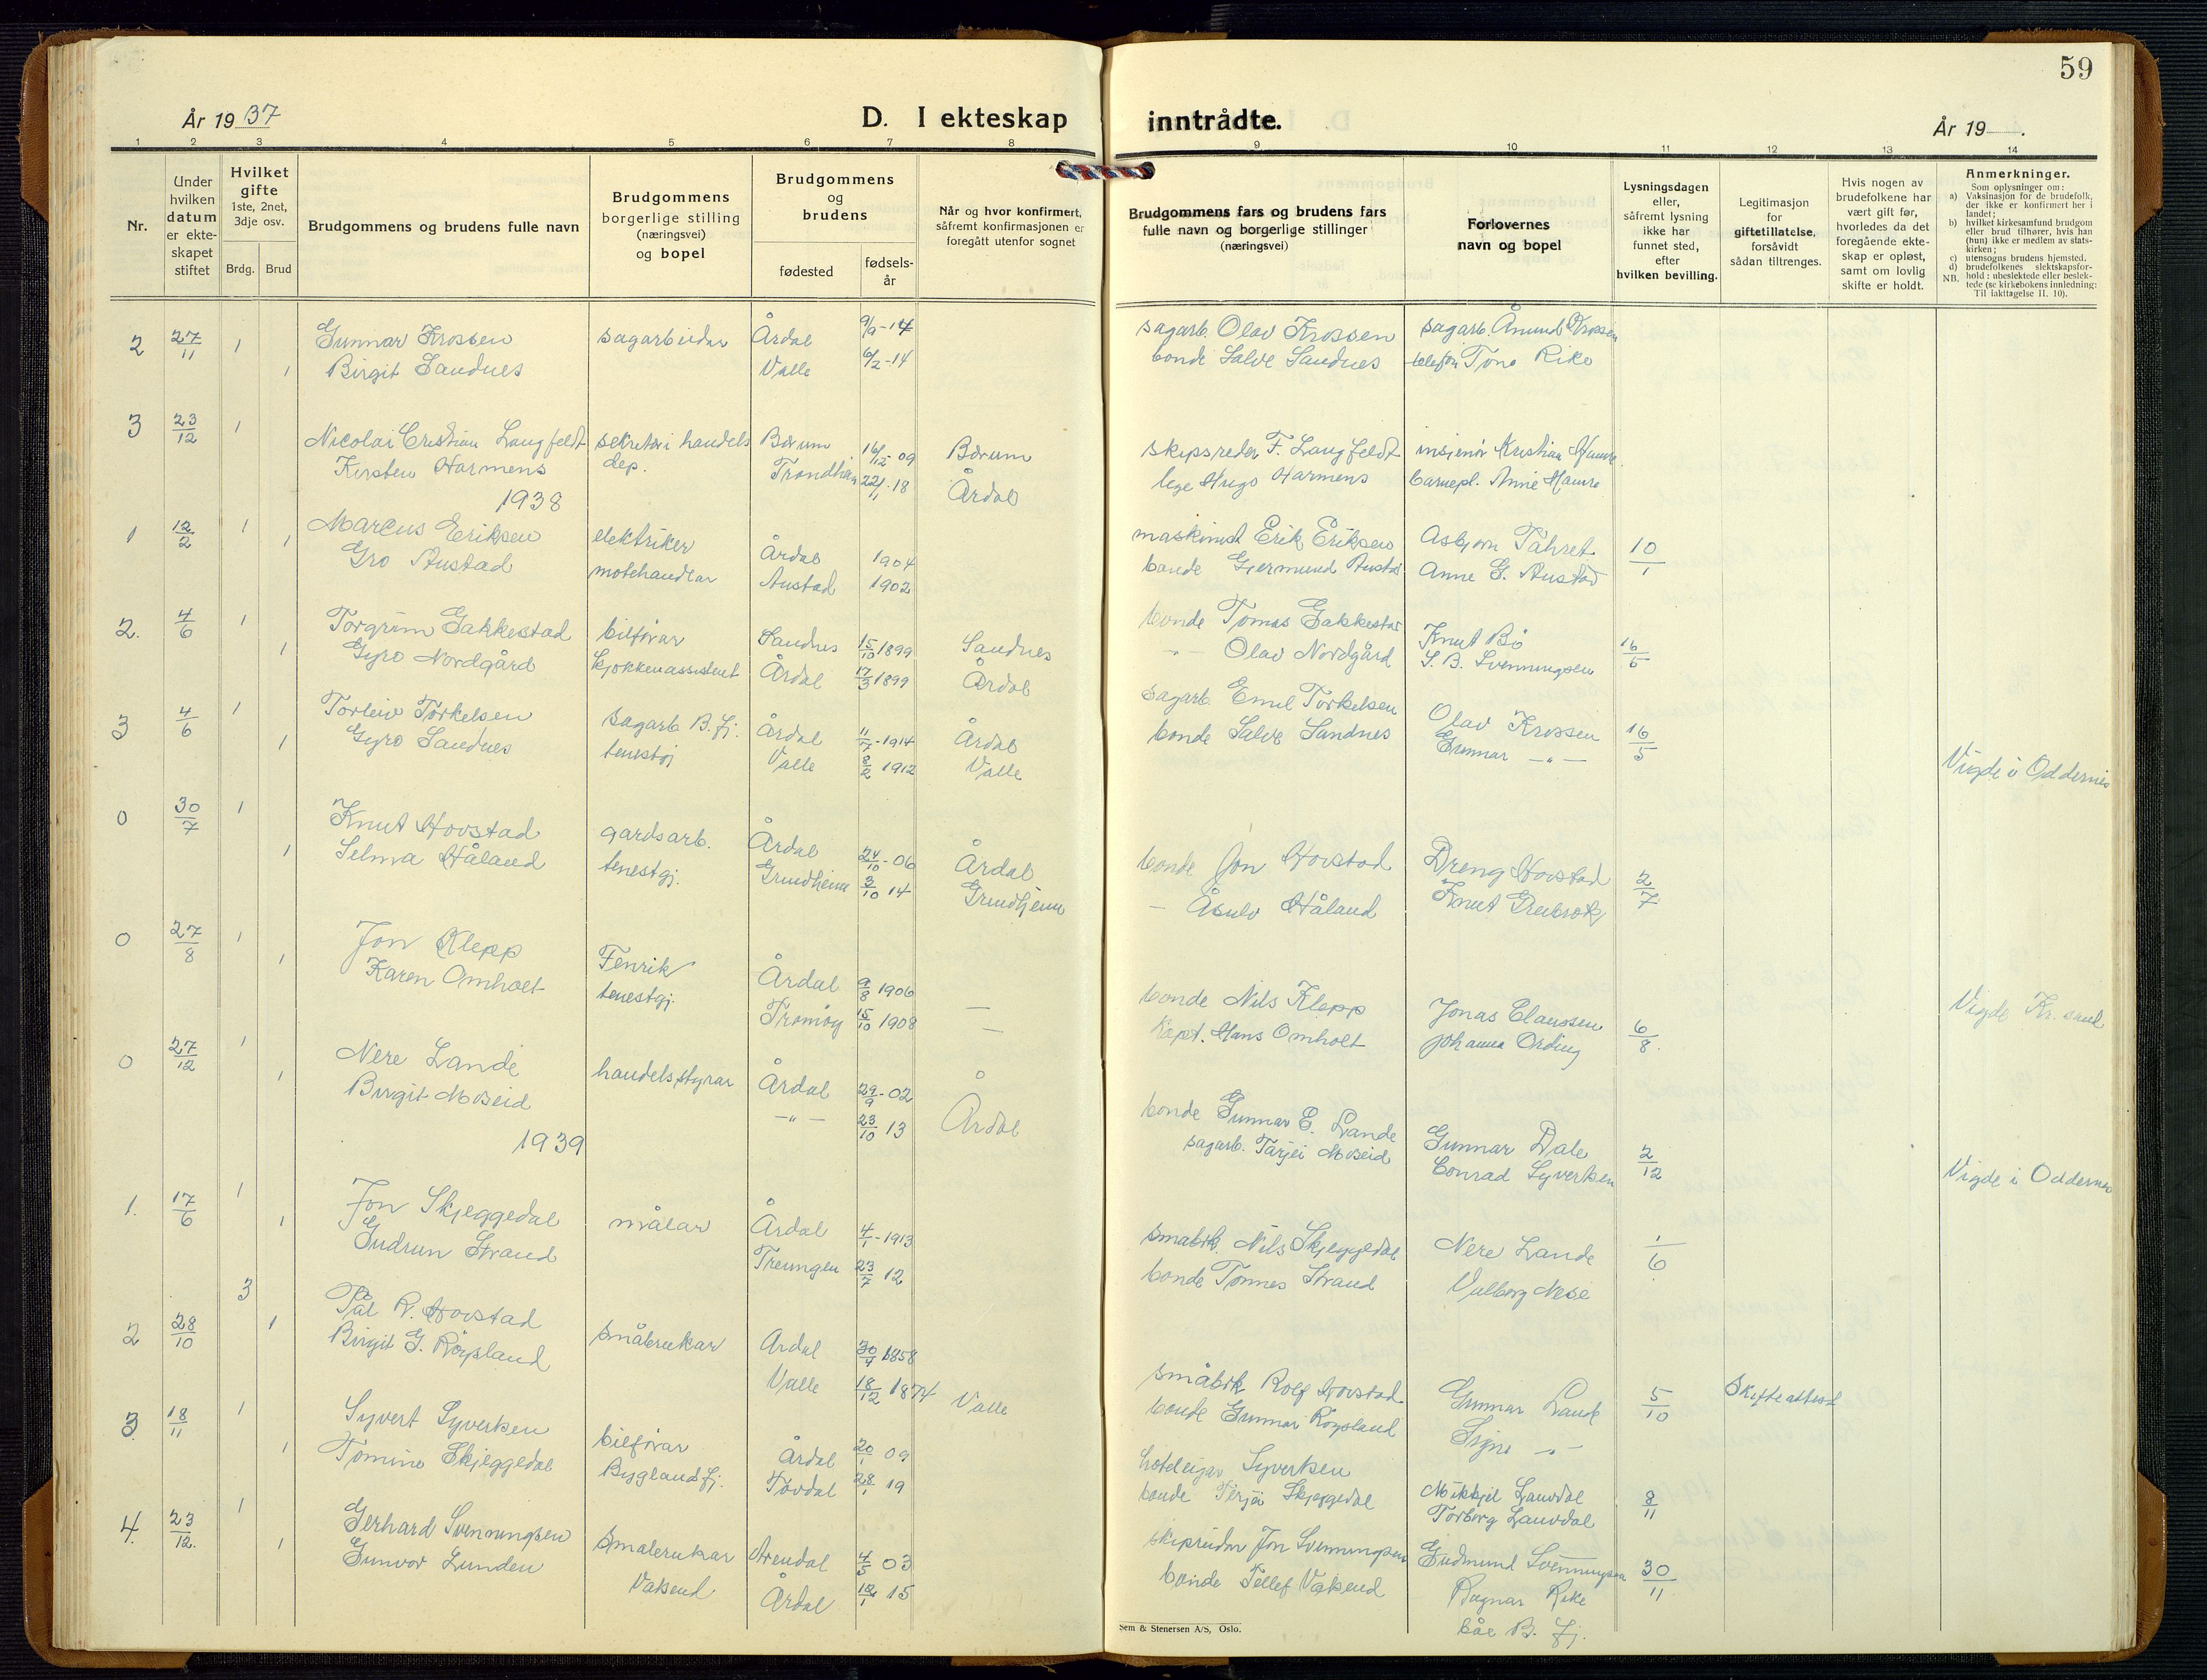 59
År 1937
D. I ekteskap inntrådte.
År 19 .
1 2 3 4 5 6 7 8 9 10 11 12 13 14
Nr.
Under hvilken datum er ekteskapet stiftet
Hvilket gifte 1ste, 2net, 3dje osv.
Brdg. Brud
Brudgommens og brudens fulle navn
Brudgommens borgerlige stilling (næringsvei) og bopel
Brudgommens og brudens
fødested
fødselsår
Når og hvor konfirmert, såfremt konfirmasjonen er foregått utenfor sognet
Brudgommens fars og brudens fars fulle navn og borgerlige stillinger (næringsvei)
Forlovernes navn og bopel
Lysningsdagen eller, såfremt lysning ikke har funnet sted, efter hvilken bevilling.
Legitimasjon for giftetillatelse, forsåvidt sådan tiltrenges.
Hvis nogen av brudefolkene har vært gift før, hvorledes da det foregående ekteskap er opløst, samt om lovlig skifte er holdt.
Anmerkninger.
Som oplysninger om:
a) Vaksinasjon for de brudefolk, der ikke er konfirmert her i landet;
b) hvilket kirkesamfund brudgom eller brud tilhører, hvis han (hun) ikke er medlem av statskirken;
c) utensogns brudens hjemsted.
d) brudefolkenes slektskapsforhold: ubeslektede eller beslektede (se kirkebokens innledning:
NB. Til iakttagelse II. 10).
2 27/11 1 Gunnar Krossen sagarbeidar Årdal 9/9-14 sagarb. Olav Krossen sagarb. Åmund Krossen
1 Birgit Sandnes Valle 6/2-14 bonde Salve Sandnes Tone Rike
3 23/12 1 Nicolai Cristian Langfeldt sekretær i handels Bærum 16/12 09 Bærum skipsreder F. Langfeldt insjenør Kristian Hamre
Kirsten Harmens dep. Trondheim 22/1-18 Årdal lege Hugo Harmens barnepl. Anne Hamre
1938
1 12/2 1 Marcus Eriksen elektriker Årdal 1904 maskinist Erik Eriksen Asbjørn Tahret 10/1
1 Gro Austad motehandlar Austad 1902 bonde Gjermund Austad Anne G. Austad
2. 4/6 1 Torgrim Gakkestad bilførar Sandnes 15/10 1899 Sandnes bonde Tomas Gakkestad Knut Bø 16/5
1 Gyro Nordgård Kjøkkenassistent Årdal 17/3 1899 Årdal -"- Olav Nordgård S. B. Svenningsen
3 4/6 1 Torleiv Torkelsen sagarb. B. Fj. Årdal 11/7-1914 Årdal sagarb. Emil Torkelsen Olav Krossen 16/5
1 Gyro Sandnes tenestgj Valle 8/2 1912 Valle bonde Salve Sandnes Gunnar -"-
Vigde i Oddernes
0 30/7 1 Knut Hovstad gardsarb. Årdal 24/10-06 Årdal bonde Jon Hovstad Dreng Hovstad 2/7
1 Selma Håland tenestgj. Grindheim 3/10 14 Grindheim - Åsulv Håland Knut
0 27/8 1 Jon Klepp Fenrik Årdal 9/8 1906 — bonde Nils Klepp Jonas Claussen 6/8
1 Karen Omholt tenestgj. Tromøy 15/10 1908 — Kapt. Hans Omholt Johanna Ording
Vigde Kr.sand
0 27/12 1 Nere Lande handelsstyrar Årdal 29/9-02 bonde Gunnar E. Lande Gunnar Dale 2/12
1 Birgit Moseid -"- 23/10 13 Årdal sagarb. Tarjei Moseid Conrad Syvertsen
Vigde i Oddernes
1939
1. 17/6 1 Jon Skjeggedal målar Årdal 4/1-1913 småbrk. Nils Skjeggedal Nere Lande 1/6
1 Gudrun Strand Treungen 23/7 12 bonde Tønnes Strand Valborg Nese
2 28/10 3 Pål R. Hovstad småbrukar Årdal 30/4 1858 småbrk Rolf Hovstad Gunnar Lande 5/10 Skifteattest
1 Birgit G. Røysland Valle 18/12 1874 Valle bonde Gunnar Røysland Signe -"-
3. 18/11 1 Syvert Syvertsen bilførar Årdal 20/1 09 hoteleigar Syvertsen Mikkjel Lauvdal 8/11
1 Tomine Skjeggedal Byglandsfj. Tovdal 28/1 19 bonde Terjei Skjeggedal Torborg Lauvdal
4. 23/12. 1 Gerhard Svenningsen Småbrukar Arendal 4/5 03 skipreidar Jon Svenningsen Gudmund Svenningsen 30/11
1 Gunvor Lunden Vassend Årdal 12/1 15 bonde Tellef Vassend Ragnar Rike
båe B. Fj.
Sem & Stenersen A/S, Oslo.